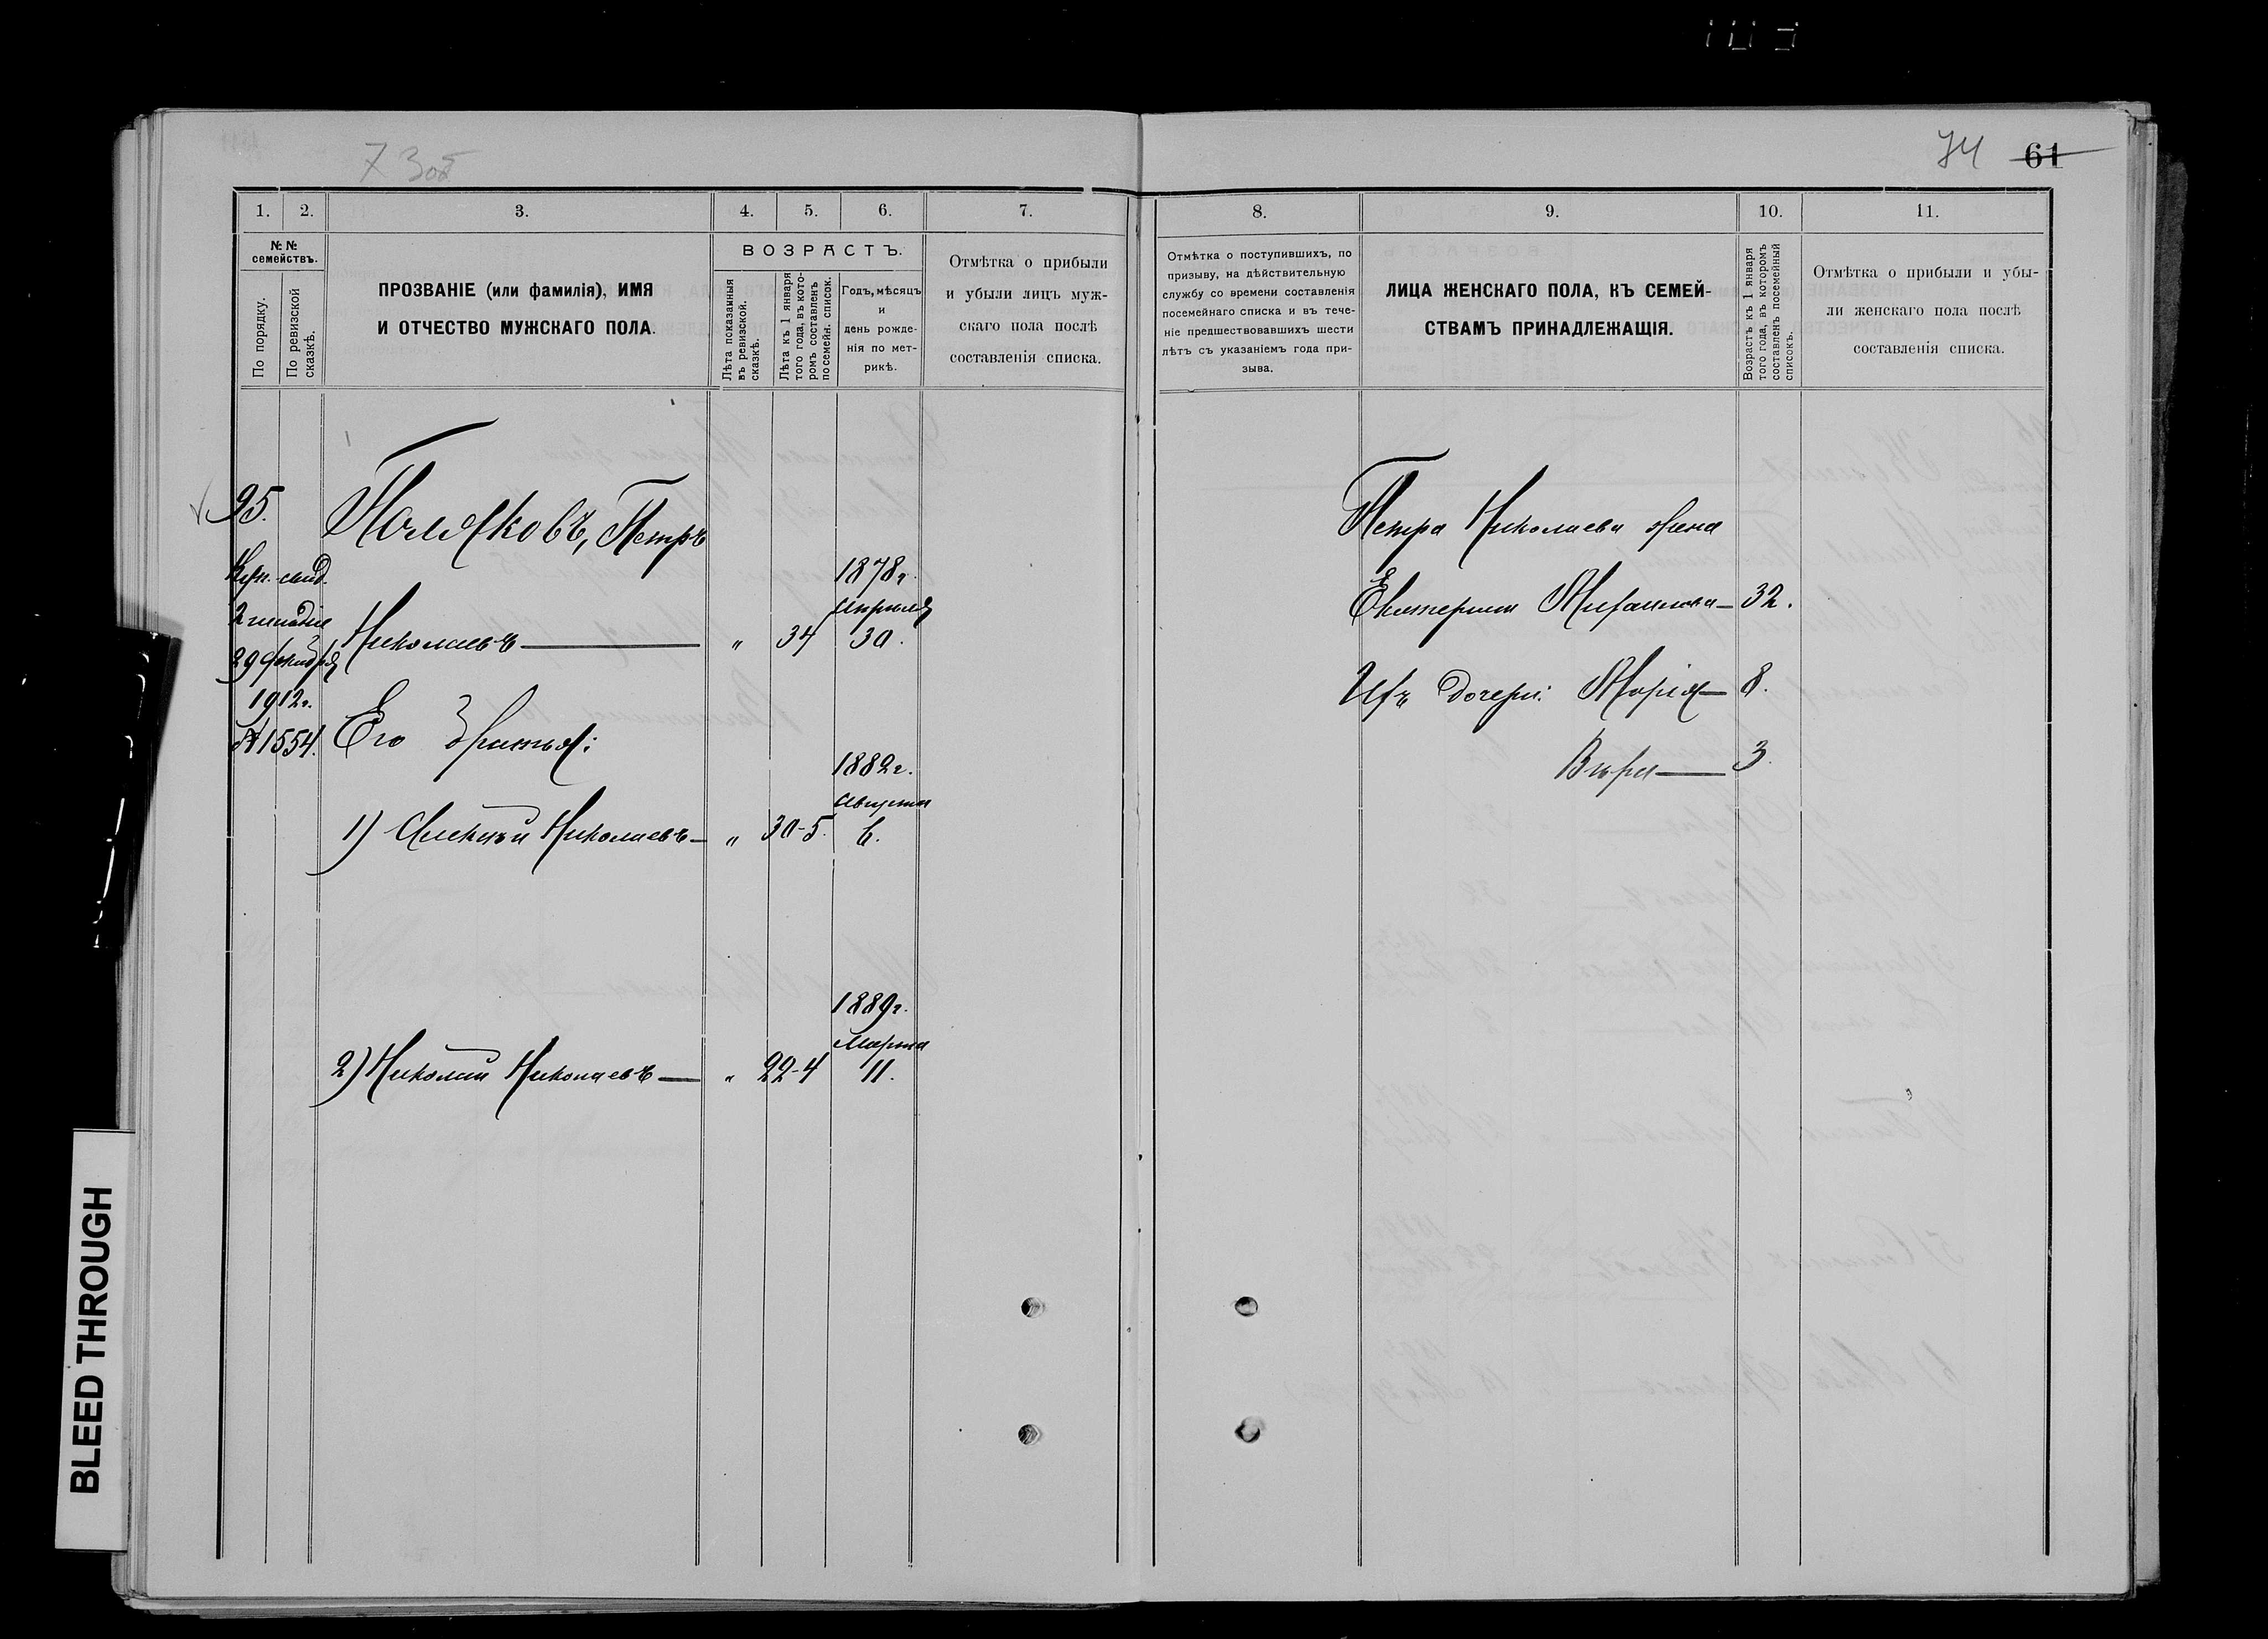 7 Зоб
74 61
1. 2. 3. 4. 5. 6. 7.
№№ семействъ.
По порядку.
По ревизской сказкѣ.
ПРОЗВАНІЕ (или фамилія), ИМЯ
И ОТЧЕСТВО МУЖСКАГО ПОЛА.
ВОЗРАСТЪ.
Лѣта показанныя въ ревизской сказкѣ.
Лѣта къ 1 января того года, въ которомъ составленъ посемейн. список.
Годъ, мѣсяцъ
и
день рожде-
нія по мет-
рикѣ.
Отмѣтка о прибыли
и убыли лицъ муж-
скаго пола послѣ
составленія списка.
95.
Куп. свид.
2 гильдіи
29 Октября
1912 г.
№ 1554.
Поляковъ, Петръ
Николаевъ — „ 34 1878 г. Апрѣля 30.
Его братья:
1) Алексѣй Николаевъ — „ 30-5. 1882 г. Августа 6.
2) Николай Николаевъ — „ 22-4 1889 г. Марта 11.
8. 9. 10. 11.
Отмѣтка о поступившихъ, по
призыву, на дѣйствительную
службу со времени составленія
посемейнаго списка и въ тече-
ніе предшествовавшихъ шести
лѣтъ съ указаніемъ года при-
зыва.
ЛИЦА ЖЕНСКАГО ПОЛА, КЪ СЕМЕЙ-
СТВАМЪ ПРИНАДЛЕЖАЩІЯ.
Возрастъ къ 1 января того года, въ которомъ составленъ посемейный списокъ.
Отмѣтка о прибыли и убы-
ли женскаго пола послѣ
составленія списка.
Петра Николаева жена
Екатерина Михайлова — 32.
Ихъ дочери: Марія — 8.
Вѣра — 3.
BLEED THROUGH